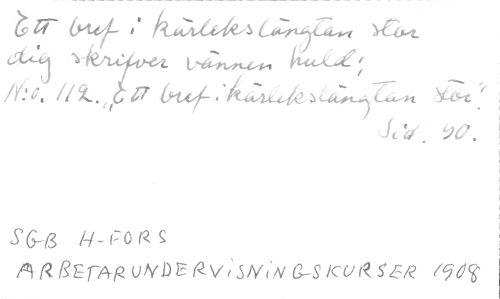 Ett bref i kärlekslängtan stor
dig skrifver vännen huld;
N:o. 112. "Ett bref i kärlekslängtan stor".
Sid. 90.
SGB H-FORS
ARBETARUNDERVISNINGSKURSER 1908